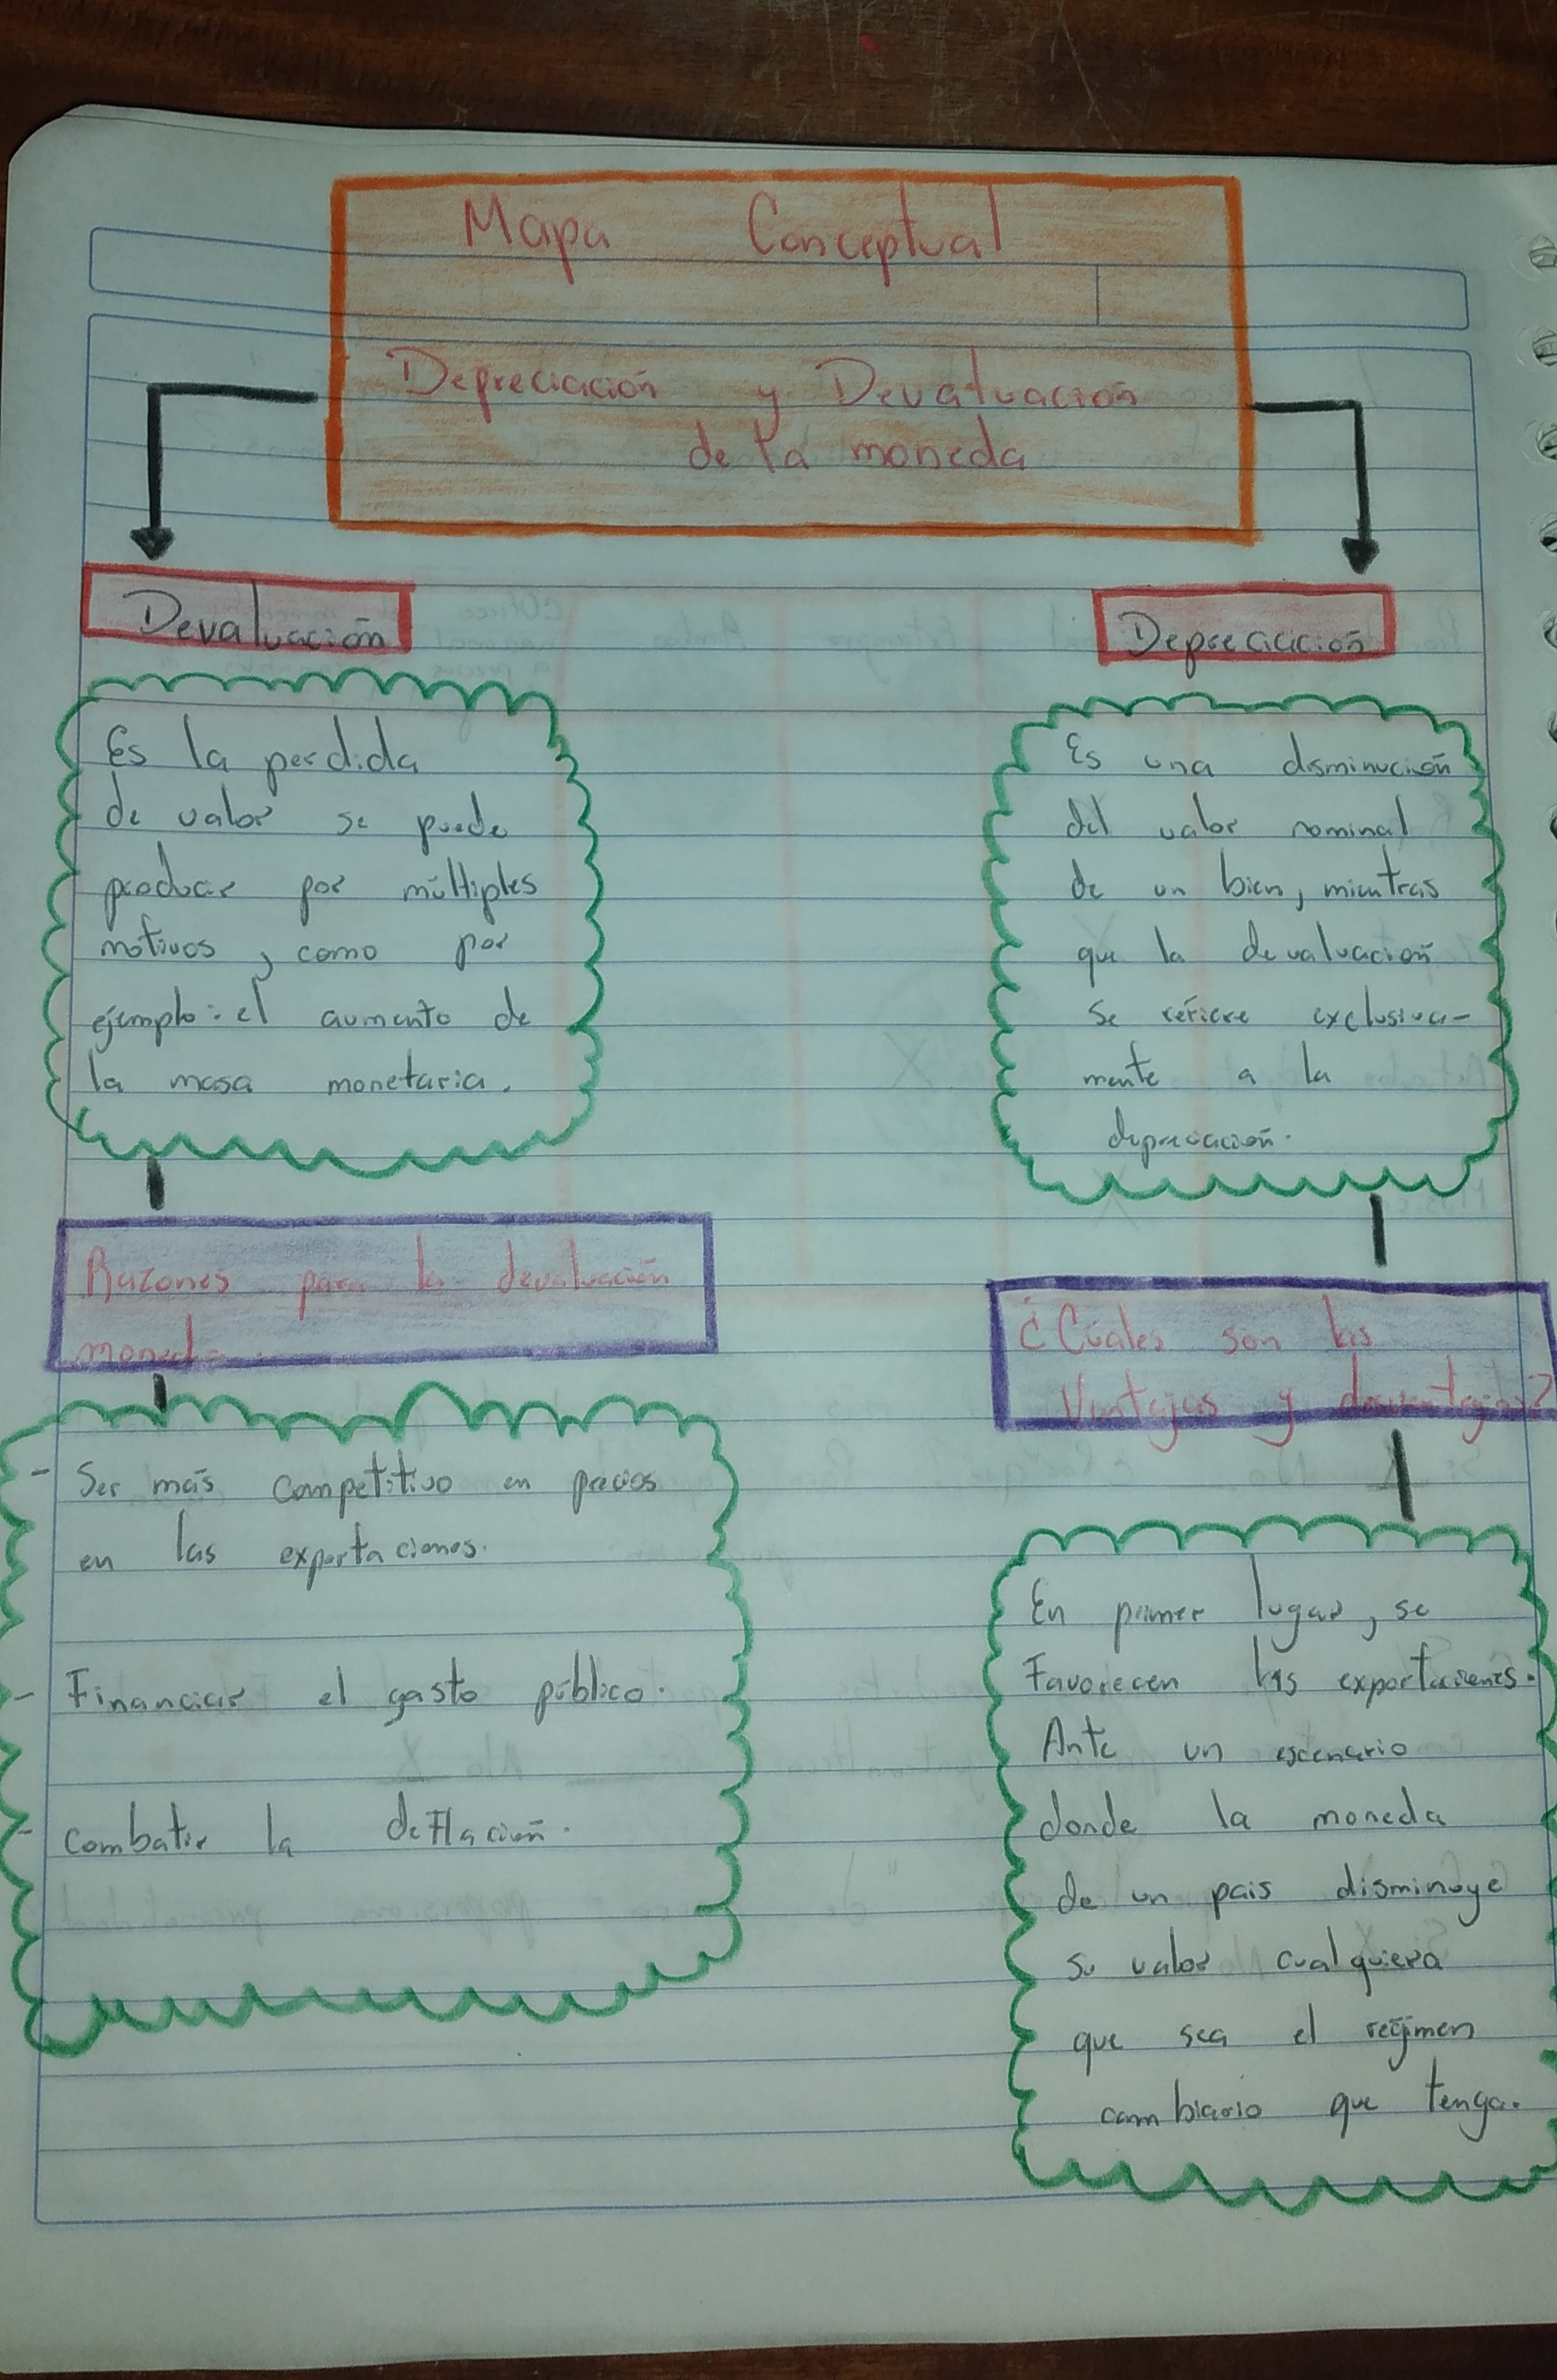 Mapa Conceptual
Depreciación y Devaluación
de la moneda
Devaluación
Es la perdida
de valor se puede
producir por múltiples
motivos, como por
ejemplo: el aumento de
la masa monetaria.
Razones para la devaluación
moneda.
- Ser más competitivo en precios
en las exportaciones.
- Financiar el gasto público.
- combatir la deflación.
Depreciación
Es una disminución
del valor nominal
de un bien, mientras
que la devaluación
se refiere exclusiva-
mente a la
depreciación.
¿Cúales son las
Ventajas y desventajas?
En primer lugar, se
Favorecen las exportaciones.
Ante un escenario
donde la moneda
de un pais disminuye
su valor cualquiera
que sea el regimen
cambiario que tenga.